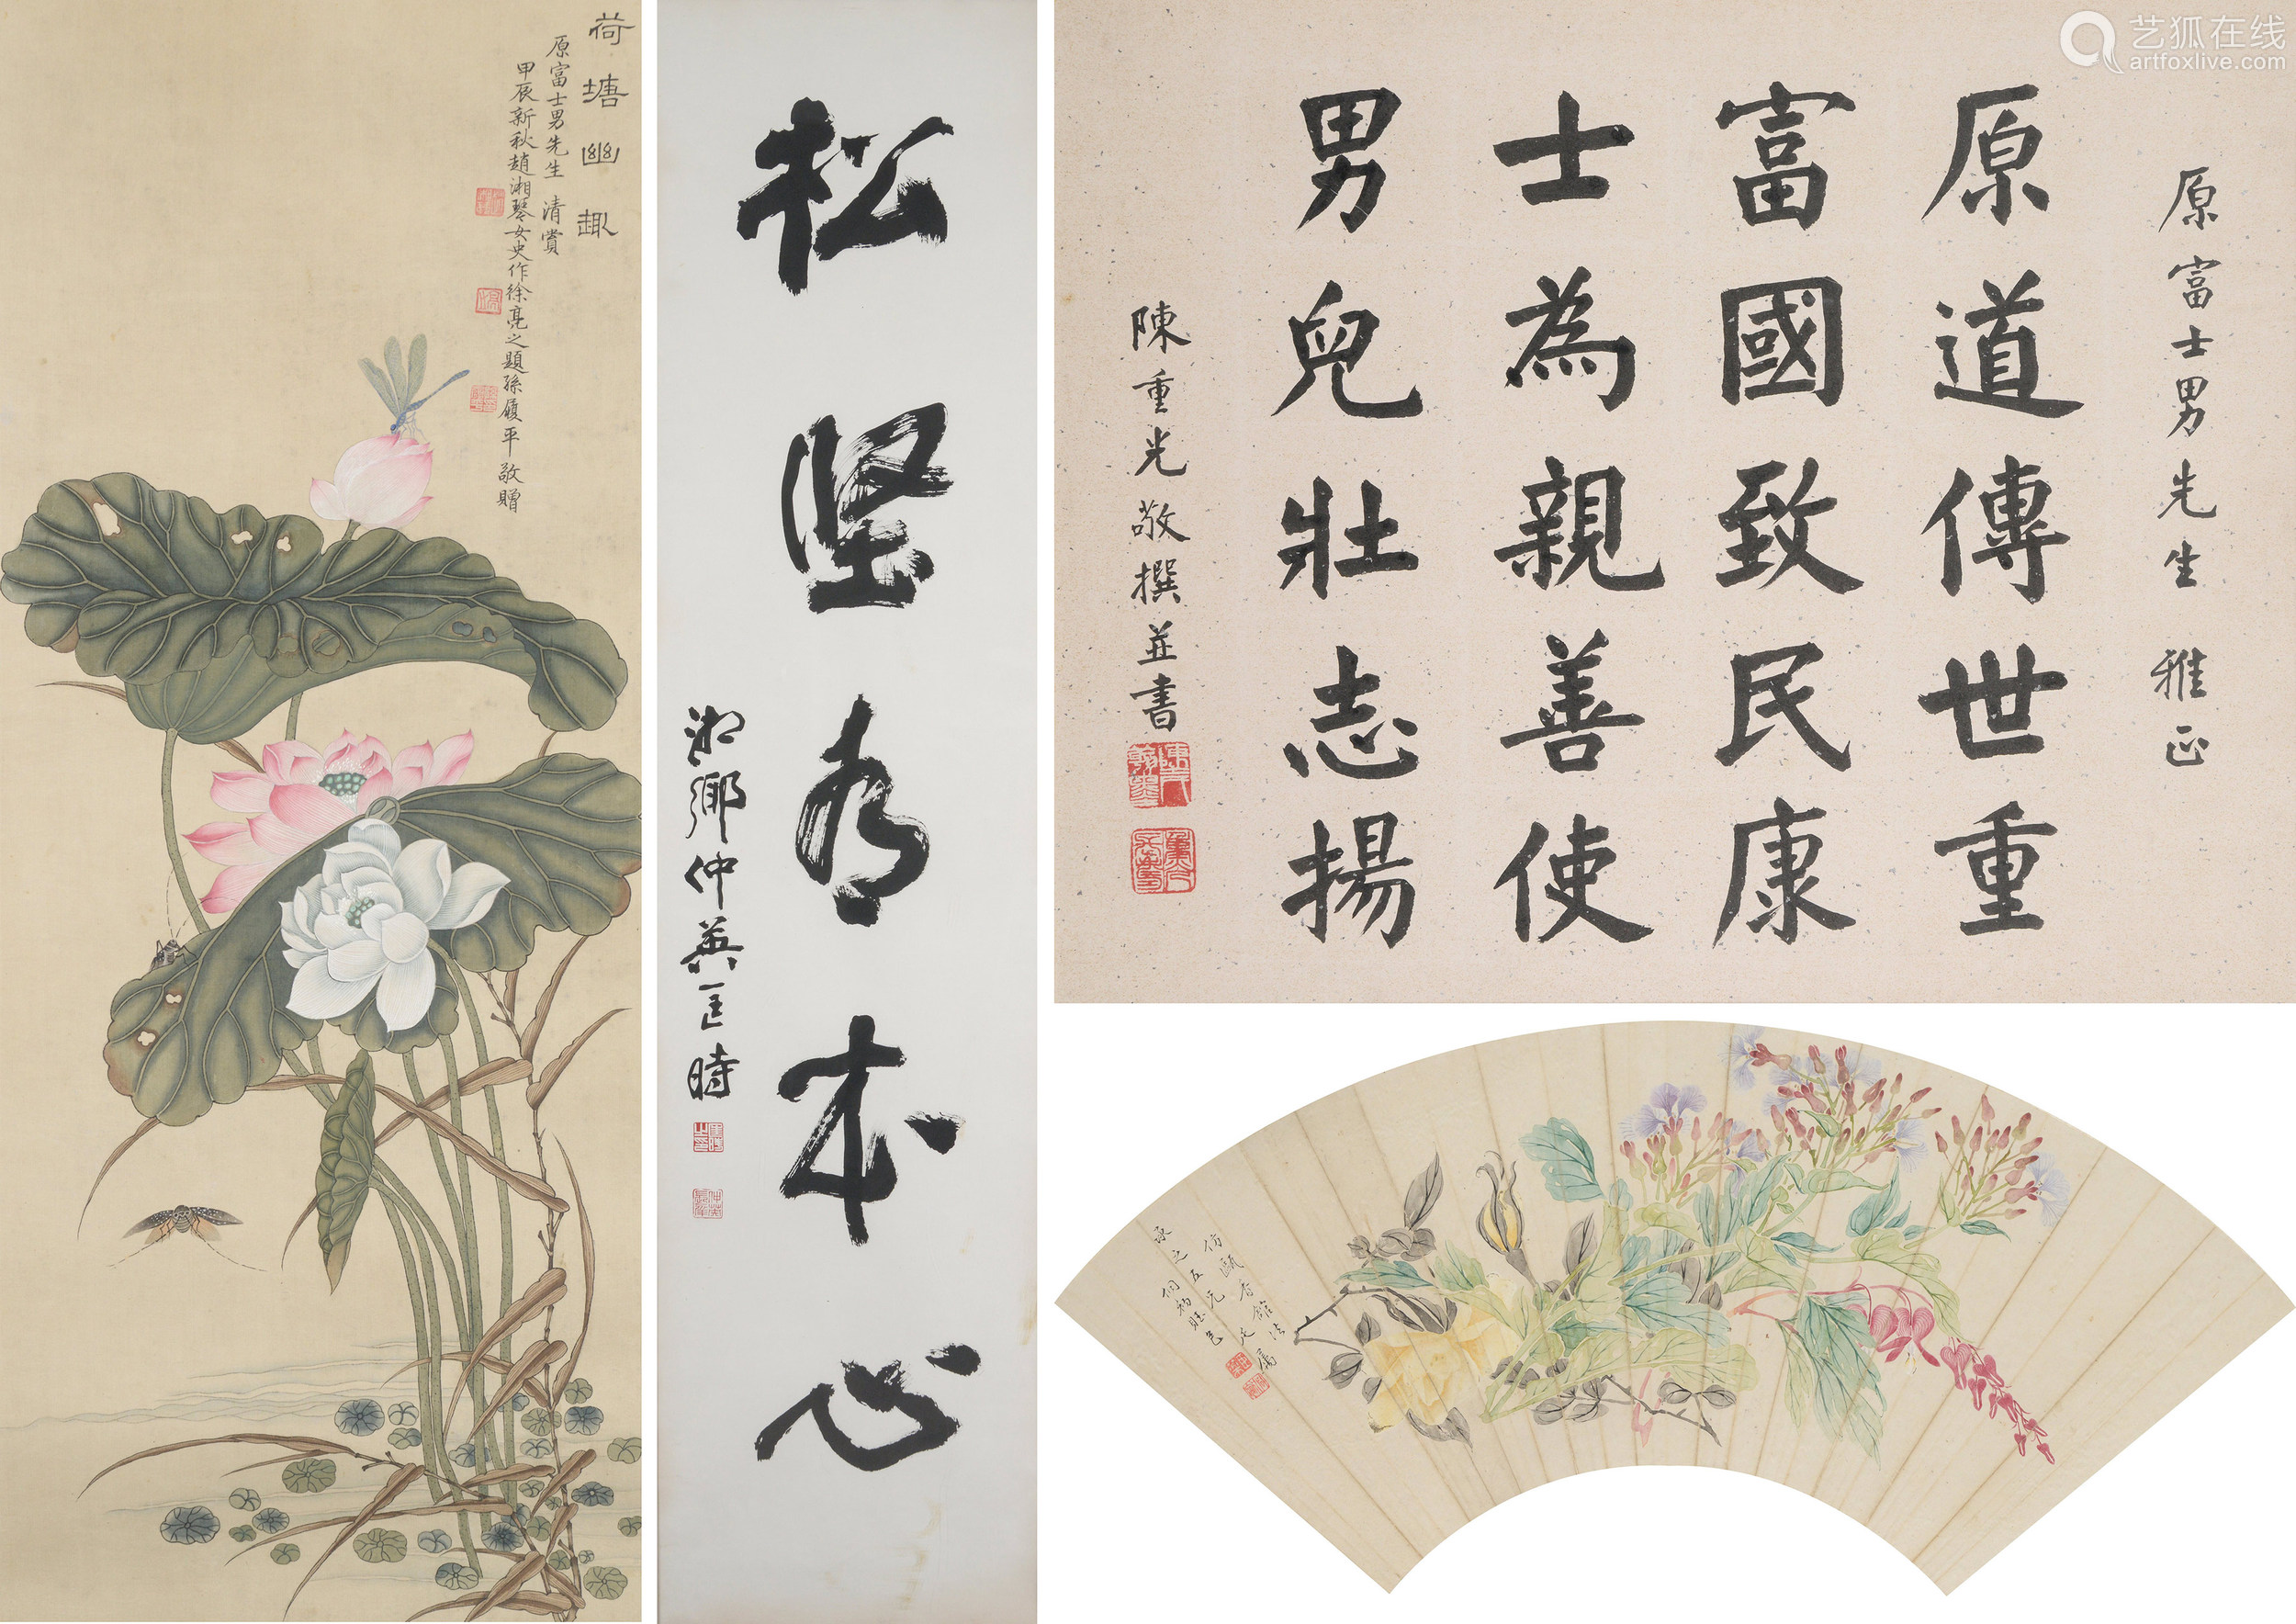 荷塘幽趣
原富士男先生 清賞
甲辰新秋趙湘琴女史作徐亮之題孫履平敬贈
松堅有本心
湘鄉仲英匡時
原富士男先生 雅正
原道傳世重
富國致民康
士為親善使
男兒壯志揚
陳重光敬撰並書
仿甌香館法
承之五兄
艺狐在线
artfoxlive.com